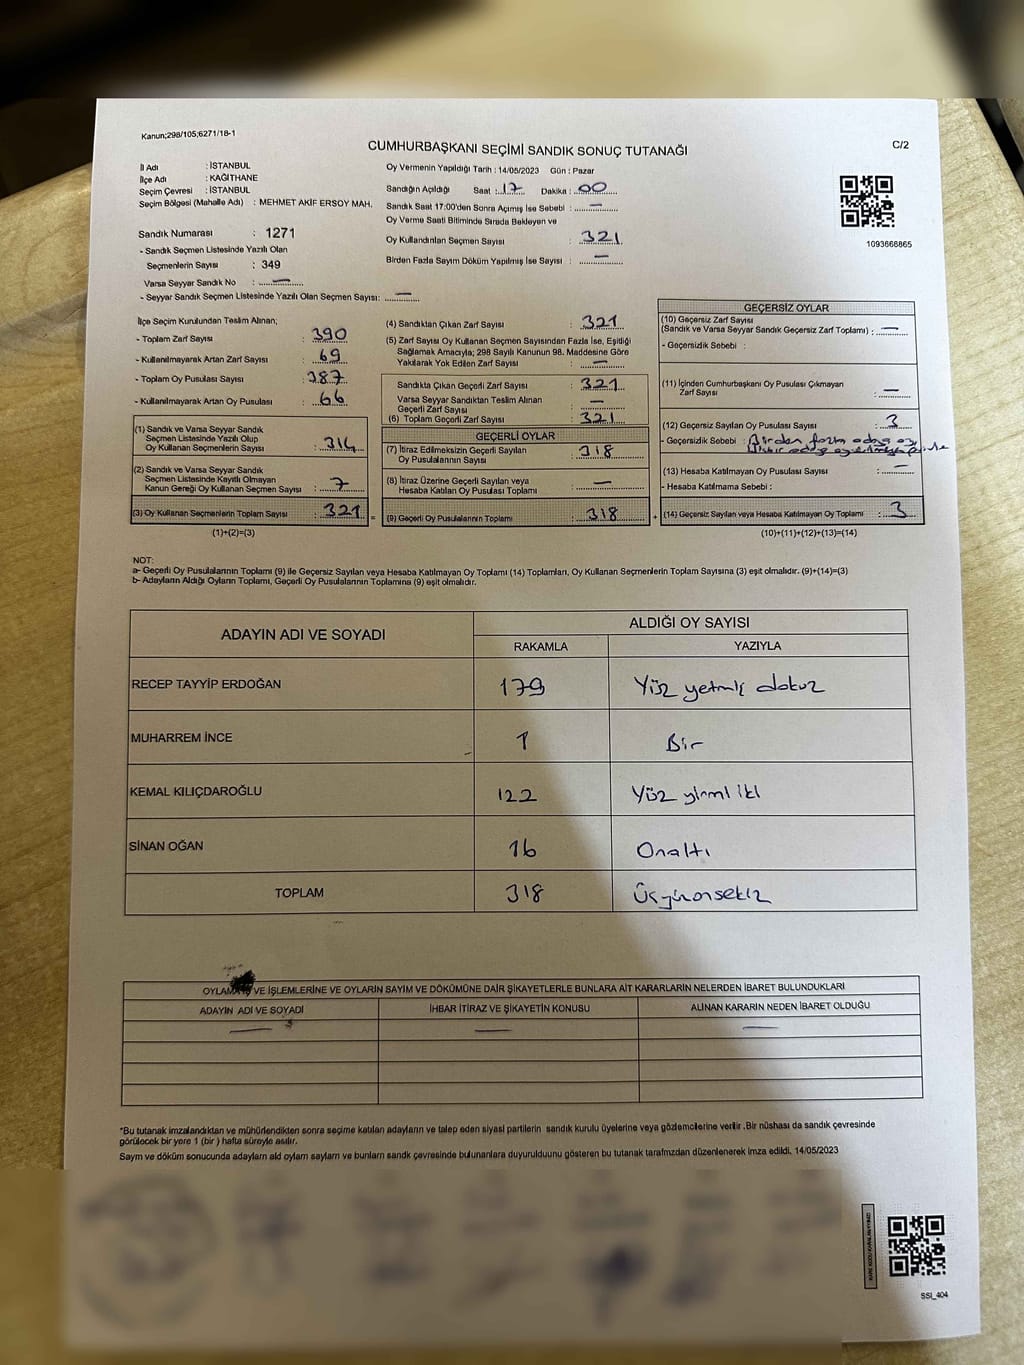 Kanun;298/105;6271/18-1
CUMHURBAŞKANI SEÇİMİ SANDIK SONUÇ TUTANAĞI
C/2
İl Adı : İSTANBUL
İlçe Adı : KAĞITHANE
Seçim Çevresi : İSTANBUL
Seçim Bölgesi (Mahalle Adı) : MEHMET AKİF ERSOY MAH.
Sandık Numarası : 1271
- Sandık Seçmen Listesinde Yazılı Olan
Seçmenlerin Sayısı : 349
Varsa Seyyar Sandık No : —
- Seyyar Sandık Seçmen Listesinde Yazılı Olan Seçmen Sayısı: —
Oy Vermenin Yapıldığı Tarih : 14/05/2023 Gün : Pazar
Sandığın Açıldığı Saat : 17 Dakika : 00
Sandık Saat 17:00'den Sonra Açımış İse Sebebi : —
Oy Verme Saati Bitiminde Sırada Bekleyen ve
Oy Kullandırılan Seçmen Sayısı : 321
Birden Fazla Sayım Döküm Yapılmış İse Sayısı : —
1093668865
İlçe Seçim Kurulundan Teslim Alınan;
- Toplam Zarf Sayısı : 390
- Kullanılmayarak Artan Zarf Sayısı : 69
- Toplam Oy Pusulası Sayısı : 387
- Kullanılmayarak Artan Oy Pusulası : 66
(1) Sandık ve Varsa Seyyar Sandık
Seçmen Listesinde Yazılı Olup
Oy Kullanan Seçmenlerin Sayısı : 314
(2) Sandık ve Varsa Seyyar Sandık
Seçmen Listesinde Kayıtlı Olmayan
Kanun Gereği Oy Kullanan Seçmen Sayısı : 7
(3) Oy Kullanan Seçmenlerin Toplam Sayısı : 321
(1)+(2)=(3)
(4) Sandıktan Çıkan Zarf Sayısı : 321
(5) Zarf Sayısı Oy Kullanan Seçmen Sayısından Fazla İse, Eşitliği
Sağlamak Amacıyla; 298 Sayılı Kanunun 98. Maddesine Göre
Yakılarak Yok Edilen Zarf Sayısı : —
Sandıkta Çıkan Geçerli Zarf Sayısı : 321
Varsa Seyyar Sandıktan Teslim Alınan
Geçerli Zarf Sayısı : —
(6) Toplam Geçerli Zarf Sayısı : 321
GEÇERLİ OYLAR
(7) İtiraz Edilmeksizin Geçerli Sayılan
Oy Pusulalarının Sayısı : 318
(8) İtiraz Üzerine Geçerli Sayılan veya
Hesaba Katılan Oy Pusulası Toplamı : —
= (9) Geçerli Oy Pusulalarının Toplamı : 318
GEÇERSİZ OYLAR
(10) Geçersiz Zarf Sayısı
(Sandık ve Varsa Seyyar Sandık Geçersiz Zarf Toplamı) : —
- Geçersizlik Sebebi :
(11) İçinden Cumhurbaşkanı Oy Pusulası Çıkmayan
Zarf Sayısı : —
(12) Geçersiz Sayılan Oy Pusulası Sayısı : 3
- Geçersizlik Sebebi : Birden fazla adaya oy
(13) Hesaba Katılmayan Oy Pusulası Sayısı : —
- Hesaba Katılmama Sebebi :
+ (14) Geçersiz Sayılan veya Hesaba Katılmayan Oy Toplamı : 3
(10)+(11)+(12)+(13)=(14)
NOT:
a- Geçerli Oy Pusulalarının Toplamı (9) ile Geçersiz Sayılan veya Hesaba Katılmayan Oy Toplamı (14) Toplamları, Oy Kullanan Seçmenlerin Toplam Sayısına (3) eşit olmalıdır. (9)+(14)=(3)
b- Adayların Aldığı Oyların Toplamı, Geçerli Oy Pusulalarının Toplamına (9) eşit olmalıdır.
ADAYIN ADI VE SOYADI
ALDIĞI OY SAYISI
RAKAMLA YAZIYLA
RECEP TAYYİP ERDOĞAN 179 Yüz yetmiş dokuz
MUHARREM İNCE 1 Bir
KEMAL KILIÇDAROĞLU 122 Yüz yirmi iki
SİNAN OĞAN 16 Onaltı
TOPLAM 318 Üçyüzonsekiz
VE İŞLEMLERİNE VE OYLARIN SAYIM VE DÖKÜMÜNE DAİR ŞİKAYETLERLE BUNLARA AİT KARARLARIN NELERDEN İBARET BULUNDUKLARI
ADAYIN ADI VE SOYADI İHBAR İTİRAZ VE ŞİKAYETİN KONUSU ALINAN KARARIN NEDEN İBARET OLDUĞU
— — —
*Bu tutanak imzalandıktan ve mühürlendikten sonra seçime katılan adayların ve talep eden siyasi partilerin sandık kurulu üyelerine veya gözlemcilerine verilir .Bir nüshası da sandık çevresinde
görülecek bir yere 1 (bir ) hafta süreyle asılır.
Sayım ve döküm sonucunda adayların ald oyların sayların ve bunların sandk çevresinde bulunanlara duyurulduunu gösteren bu tutanak tarafmzdan düzenlenerek imza edildi. 14/05/2023
SSI_404